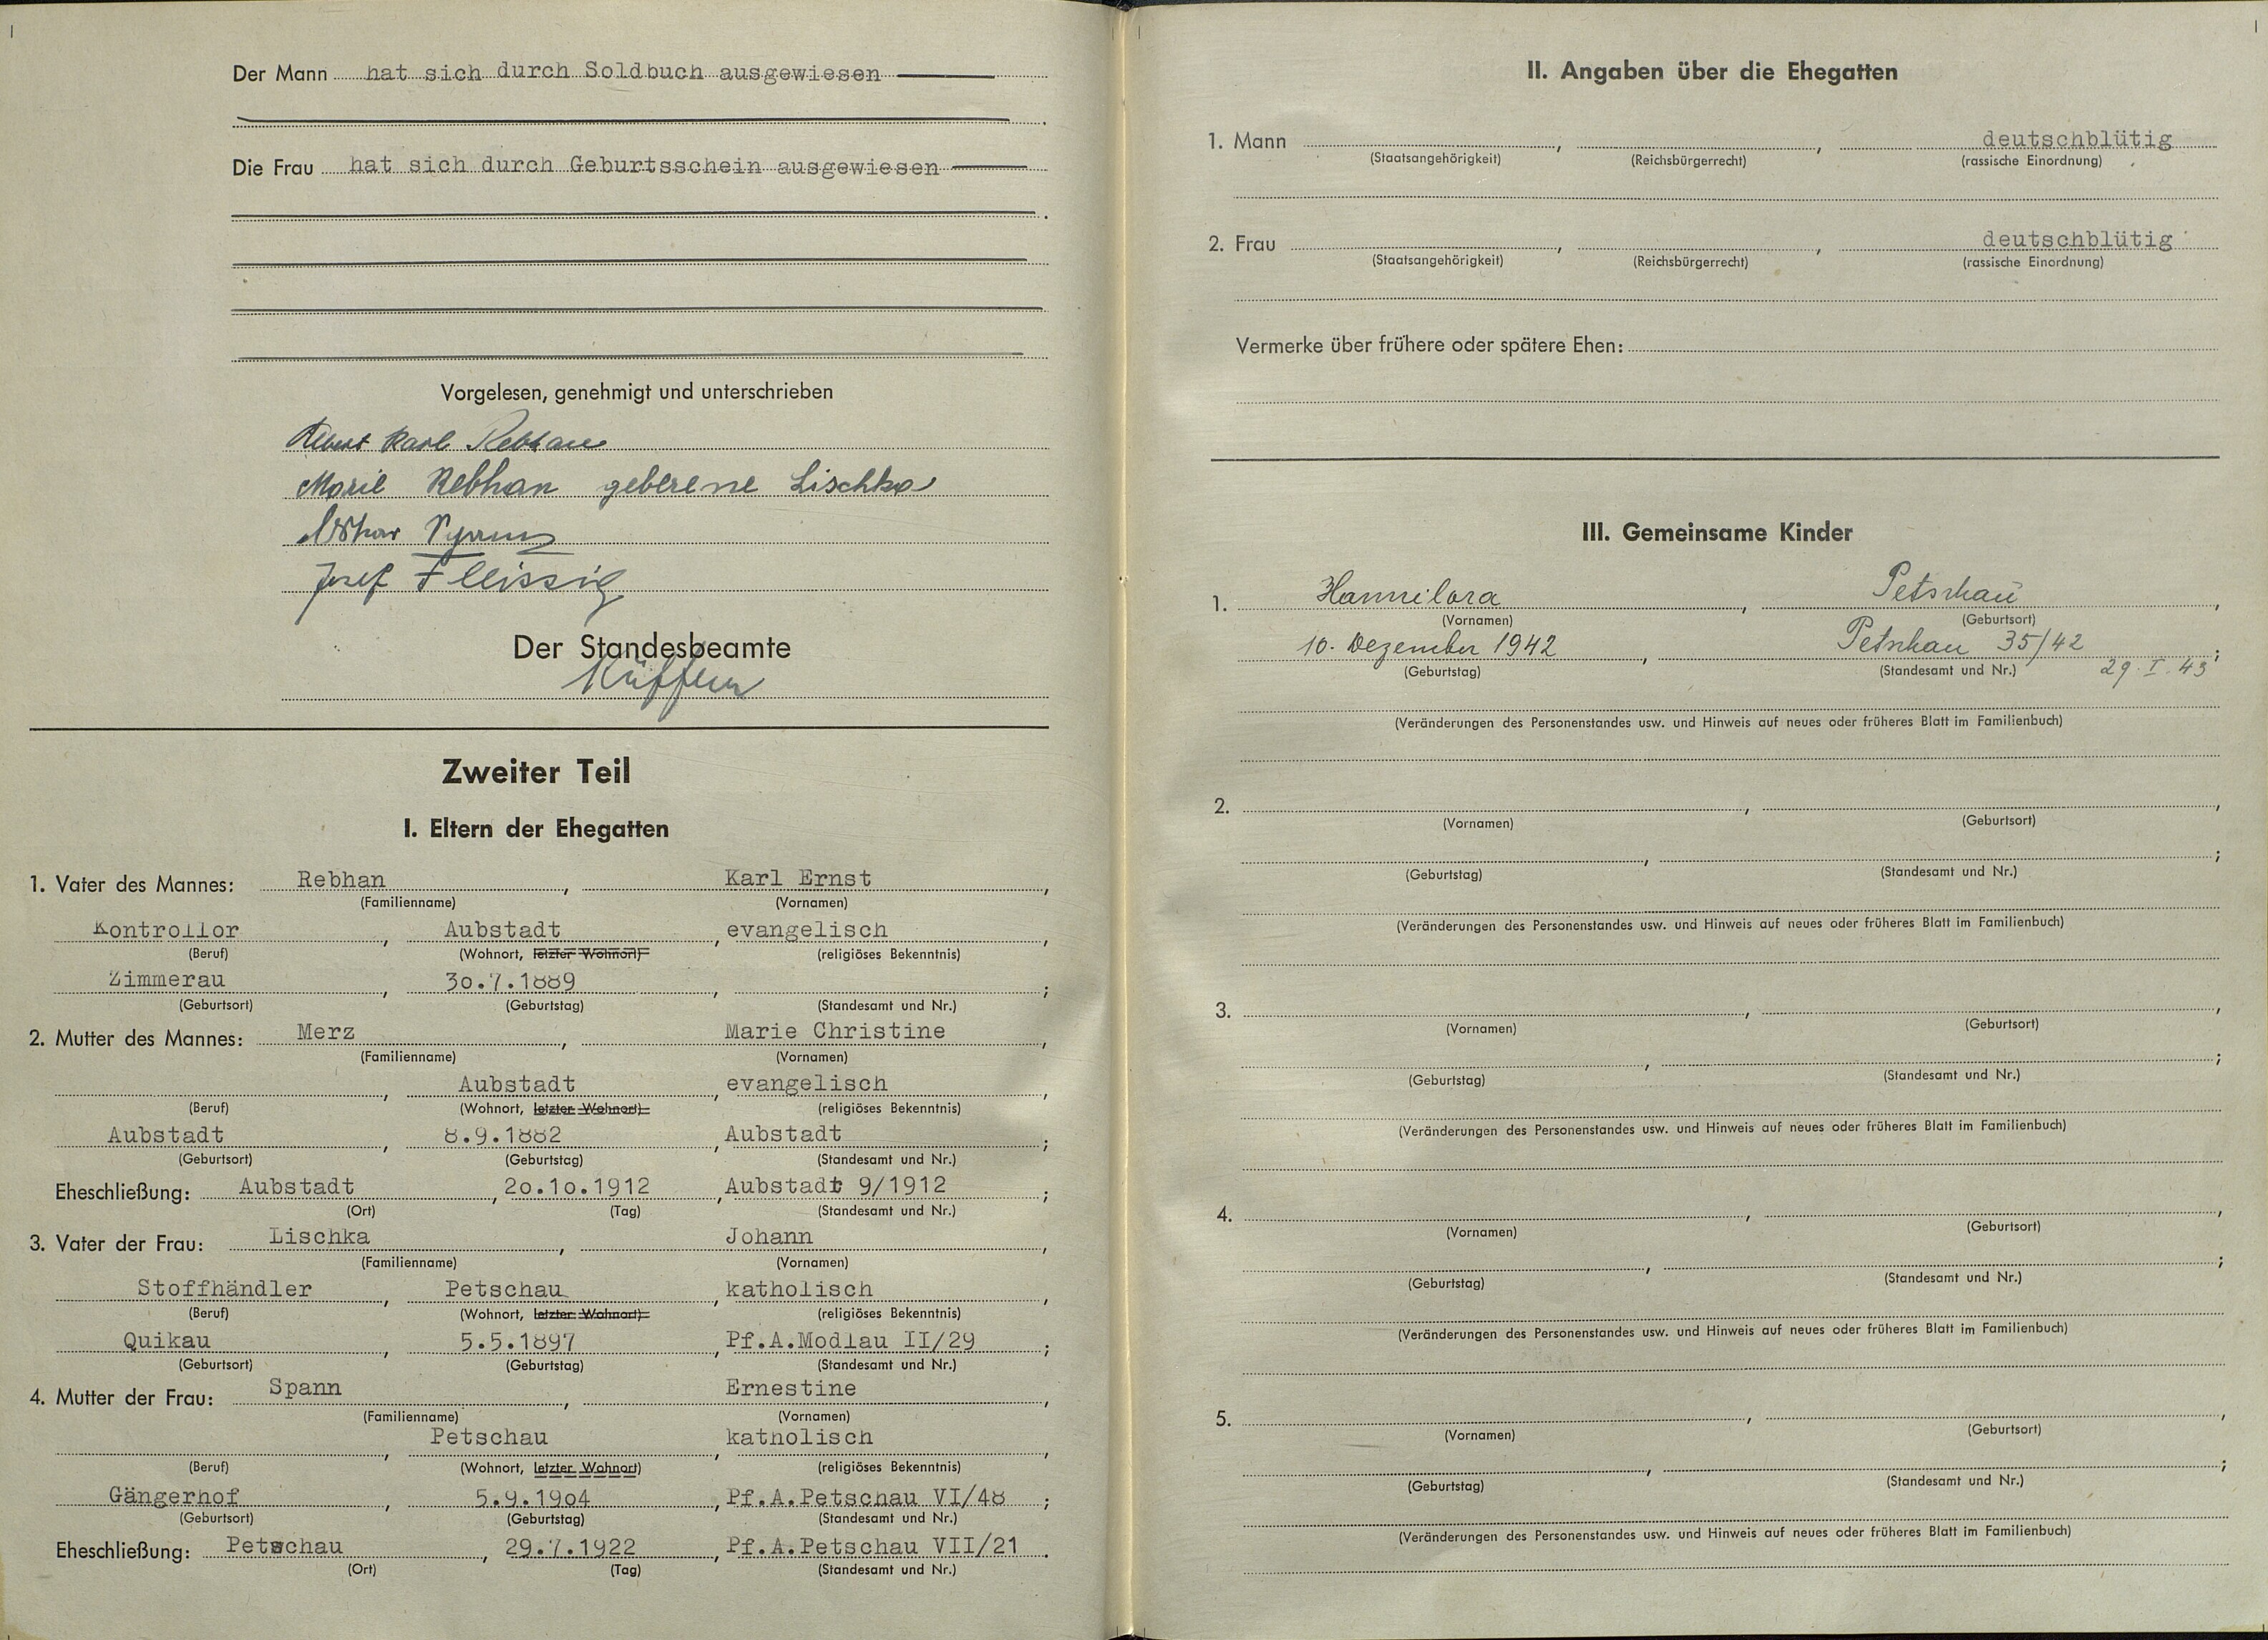 Der Mann hat sich durch Soldbuch ausgewiesen
Die Frau hat sich durch Geburtsschein ausgewiesen
Vorgelesen, genehmigt und unterschrieben
Karl Rebhan
Marie Rebhan geberene Lischka
Josef Fleissig
Der Standesbeamte
Zweiter Teil
I. Eltern der Ehegatten
1. Vater des Mannes: Rebhan, Karl Ernst,
(Familienname) (Vornamen)
Kontrollor, Aubstadt, evangelisch,
(Beruf) (Wohnort, letzter Wohnort) (religiöses Bekenntnis)
Zimmerau, 30.7.1889, ;
(Geburtsort) (Geburtstag) (Standesamt und Nr.)
2. Mutter des Mannes: Merz, Marie Christine,
(Familienname) (Vornamen)
, Aubstadt, evangelisch,
(Beruf) (Wohnort, letzter Wohnort) (religiöses Bekenntnis)
Aubstadt, 8.9.1882, Aubstadt;
(Geburtsort) (Geburtstag) (Standesamt und Nr.)
Eheschließung: Aubstadt, 20.10.1912, Aubstadt 9/1912;
(Ort) (Tag) (Standesamt und Nr.)
3. Vater der Frau: Lischka, Johann,
(Familienname) (Vornamen)
Stoffhändler, Petschau, katholisch,
(Beruf) (Wohnort, letzter Wohnort) (religiöses Bekenntnis)
Quikau, 5.5.1897, Pf.A.Modlau II/29;
(Geburtsort) (Geburtstag) (Standesamt und Nr.)
4. Mutter der Frau: Spann, Ernestine,
(Familienname) (Vornamen)
, Petschau, katholisch,
(Beruf) (Wohnort, letzter Wohnort) (religiöses Bekenntnis)
Gängerhof, 5.9.1904, Pf.A.Petschau VI/48;
(Geburtsort) (Geburtstag) (Standesamt und Nr.)
Eheschließung: Petschau, 29.7.1922, Pf.A.Petschau VII/21.
(Ort) (Tag) (Standesamt und Nr.)
II. Angaben über die Ehegatten
1. Mann , , deutschblütig
(Staatsangehörigkeit) (Reichsbürgerrecht) (rassische Einordnung)
2. Frau , , deutschblütig
(Staatsangehörigkeit) (Reichsbürgerrecht) (rassische Einordnung)
Vermerke über frühere oder spätere Ehen:
III. Gemeinsame Kinder
1. Hannilora, Petschau,
(Vornamen) (Geburtsort)
10. Dezember 1942, Petschau 35/42;
(Geburtstag) (Standesamt und Nr.) 29. I. 43
(Veränderungen des Personenstandes usw. und Hinweis auf neues oder früheres Blatt im Familienbuch)
2. , ,
(Vornamen) (Geburtsort)
, ;
(Geburtstag) (Standesamt und Nr.)
(Veränderungen des Personenstandes usw. und Hinweis auf neues oder früheres Blatt im Familienbuch)
3. , ,
(Vornamen) (Geburtsort)
, ;
(Geburtstag) (Standesamt und Nr.)
(Veränderungen des Personenstandes usw. und Hinweis auf neues oder früheres Blatt im Familienbuch)
4. , ,
(Vornamen) (Geburtsort)
, ;
(Geburtstag) (Standesamt und Nr.)
(Veränderungen des Personenstandes usw. und Hinweis auf neues oder früheres Blatt im Familienbuch)
5. , ,
(Vornamen) (Geburtsort)
, ;
(Geburtstag) (Standesamt und Nr.)
(Veränderungen des Personenstandes usw. und Hinweis auf neues oder früheres Blatt im Familienbuch)